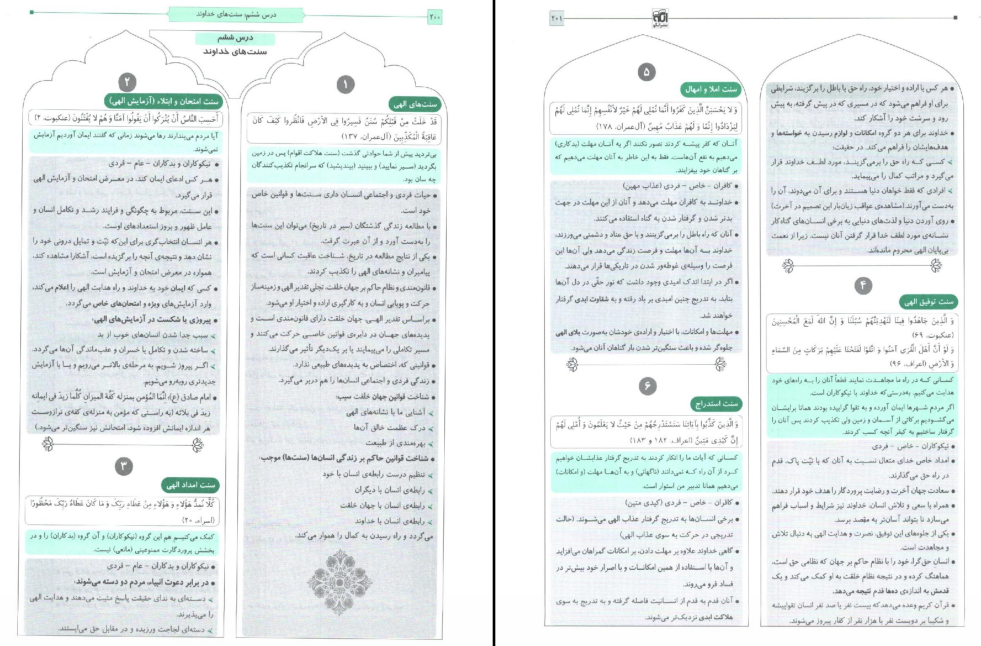 درس ششم: سنت‌های خداوند
۲۰۰
درس ششم
سنت‌های خداوند
۱
سنت‌های الهی
قَدْ خَلَتْ مِنْ قَبْلِكُمْ سُنَنٌ فَسِيرُوا فِي الْأَرْضِ فَانْظُرُوا كَيْفَ كَانَ
عَاقِبَةُ الْمُكَذِّبِينَ (آل‌عمران، ۱۳۷)
بی‌تردید پیش از شما حوادثی گذشت (سنت هلاکت اقوام) پس در زمین
بگردید (سیر نمایید) و ببینید (بیندیشید) که سرانجام تکذیب‌کنندگان
چه سان بود.
• حیات فردی و اجتماعی انسان داری سنت‌ها و قوانین خاص
خود است.
• با مطالعه زندگی گذشتگان (سیر در تاریخ) می‌توان این سنت‌ها
را به‌دست آورد و از آن عبرت گرفت.
• یکی از نتایج مطالعه در تاریخ، شناخت عاقبت کسانی است که
پیامبران و نشانه‌های الهی را تکذیب کردند.
• قانون‌مندی و نظام حاکم بر جهان خلقت، تجلی تقدیر الهی و زمینه‌ساز
حرکت و پویایی انسان و به کارگیری اراده و اختیار او می‌شود.
• براساس تقدیر الهی، جهان خلقت دارای قانون‌مندی است و
پدیده‌های جهان در دایره‌ی قوانین خاصی حرکت می‌کنند و
مسیر تکاملی را می‌پیمایند یا بر یکدیگر تأثیر می‌گذارند.
• قوانینی که، اختصاص به پدیده‌های طبیعی ندارد.
• زندگی فردی و اجتماعی انسان‌ها را هم دربر می‌گیرد.
• شناخت قوانین جهان خلقت سبب:
➢ آشنایی ما با نشانه‌های الهی
➢ درک عظمت خالق آن‌ها
➢ بهره‌مندی از طبیعت
• شناخت قوانین حاکم بر زندگی انسان‌ها (سنت‌ها) موجب:
➢ تنظیم درست رابطه‌ی انسان با خود
➢ رابطه‌ی انسان با دیگران
➢ رابطه‌ی انسان با جهان خلقت
➢ رابطه‌ی انسان با خداوند
می‌گردد و راه رسیدن به کمال را هموار می‌کند.
۲
سنت امتحان و ابتلاء (آزمایش الهی)
أَحَسِبَ النَّاسُ أَنْ يُتْرَكُوا أَنْ يَقُولُوا آمَنَّا وَ هُمْ لَا يُفْتَنُونَ (عنکبوت، ۲)
آیا مردم می‌پندارند رها می‌شوند زمانی که گفتند ایمان آوردیم آزمایش
نمی‌شوند.
• نیکوکاران و بدکاران – عام – فردی
• هر کس ادعای ایمان کند، در معرض امتحان و آزمایش الهی
قرار می‌گیرد.
• این سنت، مربوط به چگونگی و فرایند رشد و تکامل انسان و
عامل ظهور و بروز استعدادهای اوست.
• هر انسان انتخاب‌گری برای این‌که ثبّت و تمایل درونی خود را
نشان دهد و نتیجه‌ی آنچه را برگزیده است، آشکارا مشاهده کند،
همواره در معرض امتحان و آزمایش است.
• کسی که ایمان خود به خداوند و راه هدایت الهی را اعلام می‌کند،
وارد آزمایش‌های ویژه و امتحان‌های خاص می‌گردد.
• پیروزی یا شکست در آزمایش‌های الهی:
➢ سبب جدا شدن انسان‌های خوب از بد
➢ ساخته شدن و تکامل یا خسران و عقب‌ماندگی آن‌ها می‌گردد.
➢ اگر پیروز شویم به مرحله‌ی بالاتر می‌رویم و با آزمایش
جدیدتری روبه‌رو می‌شویم.
• امام صادق (ع): اِنَّمَا المُؤمِنُ بِمَنزِلَه کَفَّه المیزانِ کُلَّما زیدَ فی ایمانه
زیدَ فی بلائه (به راستی که مؤمن به منزله‌ی کفه‌ی ترازوست
هر اندازه ایمانش افزوده شود، امتحانش نیز سنگین‌تر می‌شود.)
۳
سنت امداد الهی
كُلًّا نُمِدُّ هَؤُلَاءِ وَ هَؤُلَاءِ مِنْ عَطَاءِ رَبِّكَ وَ مَا كَانَ عَطَاءُ رَبِّكَ مَحْظُورًا
(اسراء، ۲۰)
کمک می‌کنیم هم این گروه (نکوکاران) و آن گروه (بدکاران) را و در
بخشش پروردگارت ممنوعیتی (مانعی) نیست.
• نیکوکاران و بدکاران – عام – فردی
• در برابر دعوت انبیاء، مردم دو دسته می‌شوند:
➢ دسته‌ای به ندای حقیقت پاسخ مثبت می‌دهند و هدایت الهی
را می‌پذیرند.
➢ دسته‌ای لجاجت ورزیده و در مقابل حق می‌ایستند.
۲۰۱
• هر کس با اراده و اختیار خود، راه حق یا باطل را برگزیند، شرایطی
برای او فراهم می‌شود که در مسیری که در پیش گرفته، به پیش
رود و سرشت خود را آشکار کند.
• خداوند برای هر دو گروه امکانات و لوازم رسیدن به خواسته‌ها و
هدف‌هایشان را فراهم می‌کند. در حقیقت:
➢ کسی که راه حق را برمی‌گزیند، مورد لطف خداوند قرار
می‌گیرد و مراتب کمال را می‌پیماید.
➢ افرادی که فقط خواهان دنیا هستند و برای آن می‌دوند، آن را
به‌دست می‌آورند. (مشاهده‌ی عواقب زیان‌بار این تصمیم در آخرت)
• روی آوردن دنیا و لذت‌های دنیایی به برخی انسان‌های گناه‌کار
نشانه‌ی مورد لطف خدا قرار گرفتن آنان نیست، زیرا از نعمت
بی‌پایان الهی محروم مانده‌اند.
۴
سنت توفیق الهی
وَ الَّذِينَ جَاهَدُوا فِينَا لَنَهْدِيَنَّهُمْ سُبُلَنَا وَ إِنَّ اللَّهَ لَمَعَ الْمُحْسِنِينَ
(عنکبوت، ۶۹)
وَ لَوْ أَنَّ أَهْلَ الْقُرَى آمَنُوا وَ اتَّقَوْا لَفَتَحْنَا عَلَيْهِمْ بَرَكَاتٍ مِنَ السَّمَاءِ
وَ الْأَرْضِ (اعراف، ۹۶)
کسانی که در راه ما مجاهدت نمایند قطعاً آنان را به راه‌های خود
هدایت می‌کنیم. به‌درستی‌که خداوند با نیکوکاران است.
اگر مردم شهرها ایمان آورده و به تقوا گرایند، بودند همانا برایشان
می‌گشودیم برکاتی از آسمان و زمین ولی تکذیب کردند پس آنان را
گرفتار ساختیم به کیفر آنچه کسب کردند.
• نیکوکاران – خاص – فردی
• امداد خاص خدای متعال نسبت به آنان که با نیّت پاک، قدم
در راه حق می‌گذارند.
• سعادت جهان آخرت و رضایت پروردگار را هدف خود قرار دهند.
• همراه با سعی و تلاش انسان، خداوند نیز شرایط و اسباب فراهم
می‌سازد تا بتواند آسان‌تر به مقصد برسد.
• یکی از جلوه‌های این توفیق، نصرت و هدایت الهی به دنبال تلاش
و مجاهدت است.
• انسان حق‌گرا، خود را با نظام حاکم بر جهان که نظامی حق است،
هماهنگ کرده و در نتیجه نظام خلقت به او کمک می‌کند و یک
قدمش به اندازه‌ی ده‌ها قدم نتیجه می‌دهد.
• قرآن کریم وعده می‌دهد که بیست نفر یا صد نفر انسان تقواپیشه
و شکیبا بر دویست نفر یا هزار نفر از کفار پیروز می‌شوند.
۵
سنت املا و امهال
وَ لَا يَحْسَبَنَّ الَّذِينَ كَفَرُوا أَنَّمَا نُمْلِي لَهُمْ خَيْرٌ لِأَنْفُسِهِمْ إِنَّمَا نُمْلِي لَهُمْ
لِيَزْدَادُوا إِثْمًا وَ لَهُمْ عَذَابٌ مُهِينٌ (آل‌عمران، ۱۷۸)
آنان که کفر پیشه کردند تصور نکنند اگر به آنان مهلت (بدکاری)
می‌دهیم به نفع آن‌هاست. فقط به این خاطر به آنان مهلت می‌دهیم که
بر گناهان خود بیفزایند.
• کافران – خاص – فردی (عذاب مهین)
• خداوند به کافران مهلت می‌دهد و آنان از این مهلت در جهت
بدتر شدن و گرفتار شدن به گناه استفاده می‌کنند.
• آنان که راه باطل را برمی‌گزینند و با حق عناد و دشمنی می‌ورزند،
خداوند به آن‌ها مهلت و فرصت زندگی می‌دهد ولی آن‌ها این
فرصت را وسیله‌ی غوطه‌ور شدن در تاریکی‌ها قرار می‌دهند.
• اگر در ابتدا اندک امیدی وجود داشت که نور حقّی در دل آن‌ها
بتابد، به تدریج چنین امیدی بر باد رفته و به شقاوت ابدی گرفتار
خواهند شد.
• مهلت‌ها و امکانات، با اختیار و اراده‌ی خودشان به‌صورت بلای الهی
جلوه‌گر شده و باعث سنگین‌تر شدن بار گناهان آنان می‌شود.
۶
سنت استدراج
وَ الَّذِينَ كَذَّبُوا بِآيَاتِنَا سَنَسْتَدْرِجُهُمْ مِنْ حَيْثُ لَا يَعْلَمُونَ وَ أُمْلِي لَهُمْ
إِنَّ كَيْدِي مَتِينٌ (اعراف، ۱۸۲ و ۱۸۳)
کسانی که آیات ما را انکار کردند به تدریج گرفتار عذابشان خواهیم
کرد از آن راه که نمی‌دانند (ناگهانی) و به آن‌ها مهلت (و امکانات)
می‌دهیم همانا تدبیر من استوار است.
• کافران – خاص – فردی (کیدی متین)
• برخی انسان‌ها به تدریج گرفتار عذاب الهی می‌شوند. (حالت
تدریجی در حرکت به سوی عذاب الهی)
• گاهی خداوند علاوه بر مهلت دادن، بر امکانات گمراهان می‌افزاید
و آن‌ها با استفاده از همین امکانات و با اصرار خود بیش‌تر در
فساد فرو می‌روند.
• آنان قدم به قدم از انسانیت فاصله گرفته و به تدریج به سوی
هلاکت ابدی نزدیک‌تر می‌شوند.